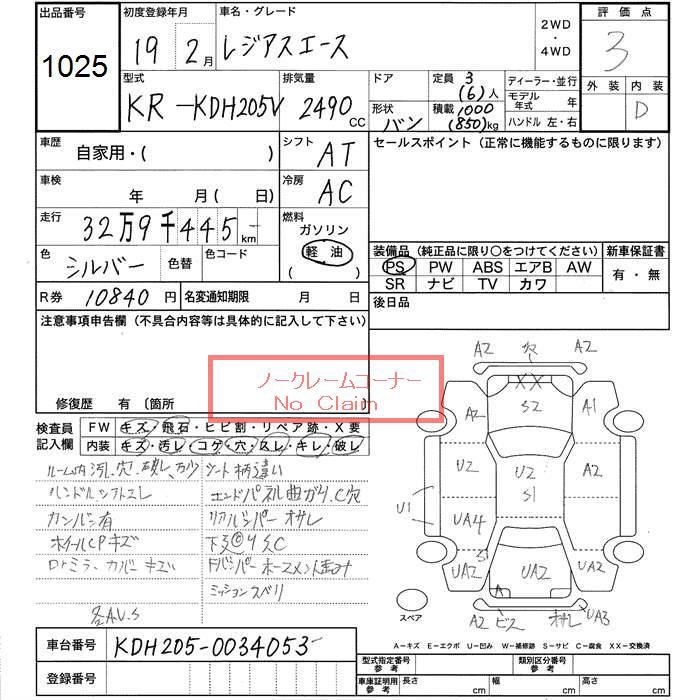 出品番号 初度登録年月 車名・グレード 2WD・4WD 評価点
1025 19年 2月 レジアスエース 3
型式 排気量 ドア 定員 3 (6)人 ディーラー・並行 外装 内装
KR-KDH205V 2490 CC 形状 バン 積載 1000 (850)kg モデル年式 年 D
ハンドル 左・右
車歴 自家用・( ) シフト AT セールスポイント (正常に機能するものに限ります)
車検 年 月( 日) 冷房 AC
走行 32万9千445 km 燃料 ガソリン 軽油 ( )
色 シルバー 色替 色コード
装備品 (純正品に限り○をつけてください) 新車保証書
PS PW ABS エアB AW 有・無
SR ナビ TV カワ
R券 10840 円 名変通知期限 月 日 後日品
注意事項申告欄 (不具合内容等は具体的に記入して下さい)
ノークレームコーナー
No Claim
修復歴 有 〔箇所
検査員記入欄 FW キズ・飛石・ヒビ割・リペア跡・X要
内装 キズ・汚レ・コゲ・穴・スレ・キレ・破レ
ルーム内汚レ、穴、破レ、 シート柄違い
ハンドルシフトスレ エンドパネル曲ガリ、C穴
カンバン有 リアバンパー オサレ
ホイールCPキズ 下廻 サビC
ドアミラーカバーキズ Fバンパーホースメント歪み
ミッションスベリ
各AU、S
A2 穴 A2
XX
A2 S2 A1
U2 U2 A2
S1
U1 UA4
S1
UA2 UA2 UA2
A
A2 ビス オサレ UA3
スペア
A-キズ E-エクボ U-凹み W-補修跡 S-サビ C-腐食 XX-交換済
車台番号 KDH205-0034053
型式指定番号 参考 類別区分番号 参考
登録番号 車庫証明用 参考 長さ cm 幅 cm 高さ cm